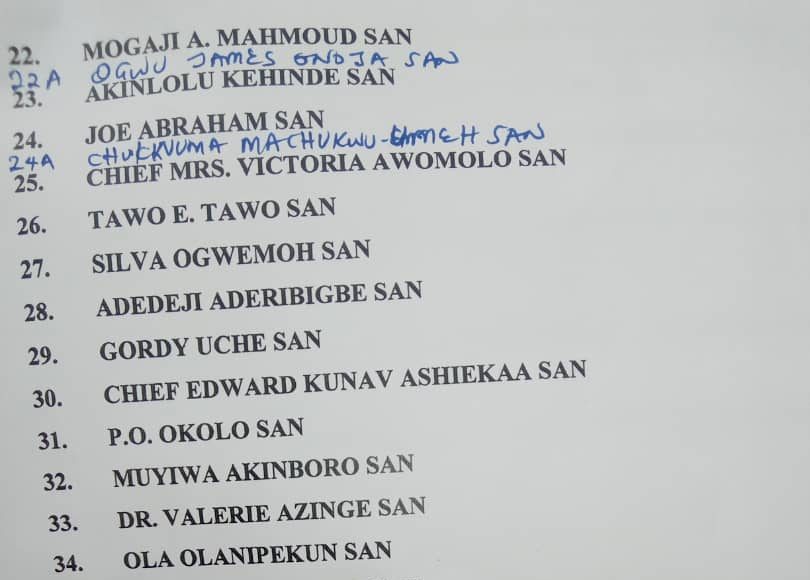 22. MOGAJI A. MAHMOUD SAN
22A OGWU JAMES ONOJA SAN
23. AKINLOLU KEHINDE SAN
24. JOE ABRAHAM SAN
24A CHUKWUMA MACHUKWU- SAN
25. CHIEF MRS. VICTORIA AWOMOLO SAN
26. TAWO E. TAWO SAN
27. SILVA OGWEMOH SAN
28. ADEDEJI ADERIBIGBE SAN
29. GORDY UCHE SAN
30. CHIEF EDWARD KUNAV ASHIEKAA SAN
31. P.O. OKOLO SAN
32. MUYIWA AKINBORO SAN
33. DR. VALERIE AZINGE SAN
34. OLA OLANIPEKUN SAN